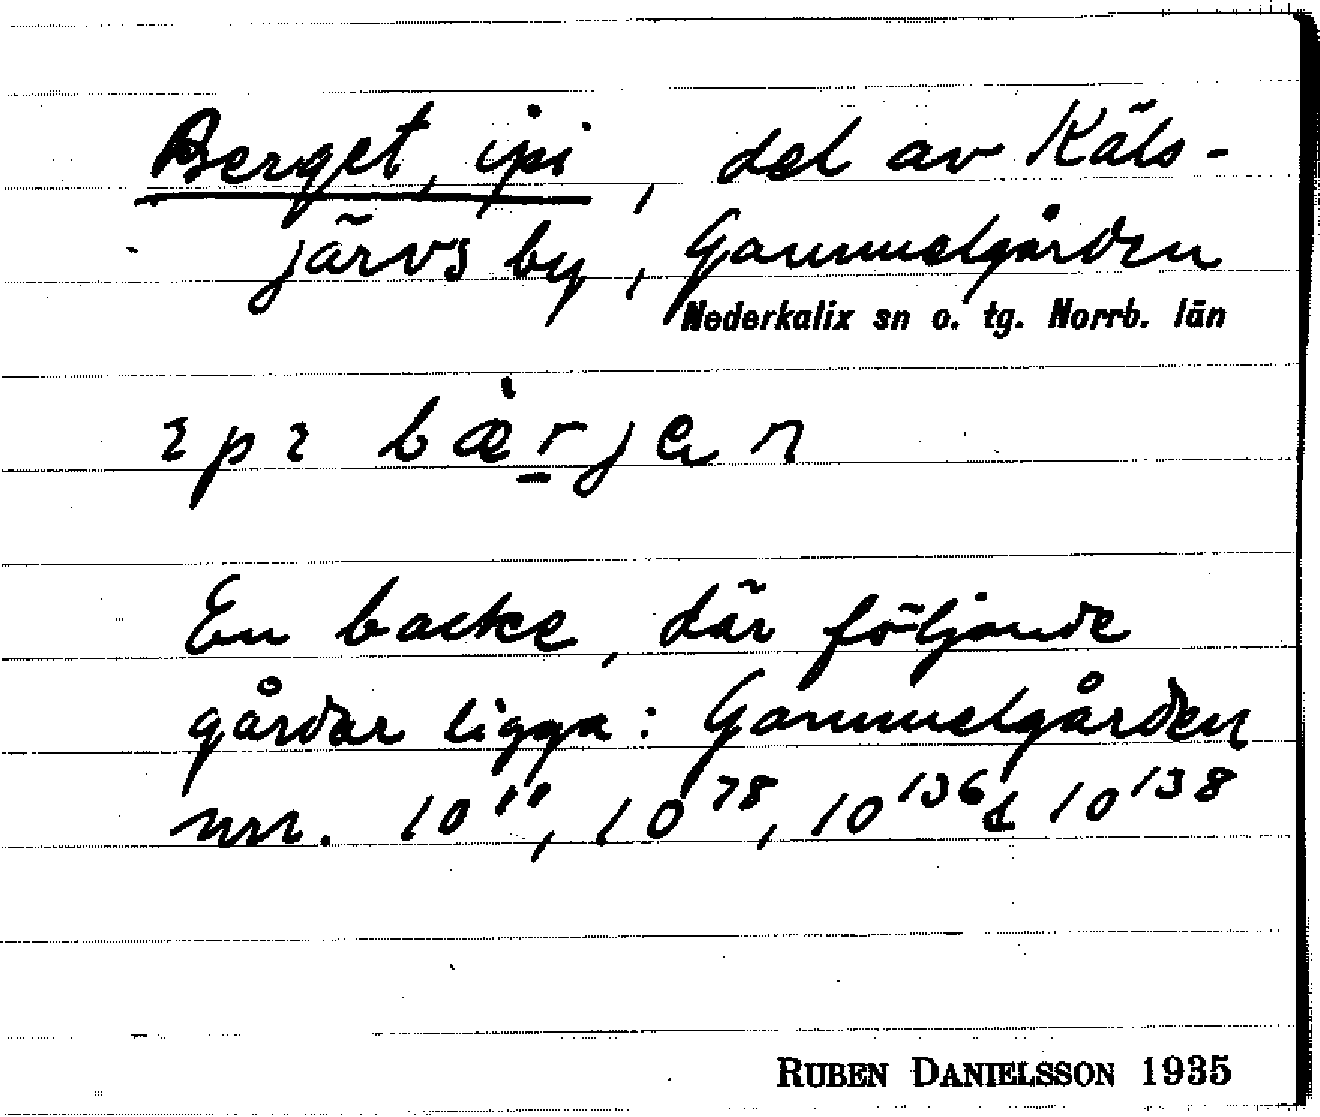 Berget, ipi, del av Käls-
järvs by, Gammelgården
Nederkalix sn o. tg. Norrb. län
ɩpɩ bæ̀r̲jen
En backe, där följande
gårdar ligga: Gammelgården
nrr. 10¹¹, 10⁷⁸, 10¹³⁶ & 10¹³⁸
RUBEN DANIELSSON 1935